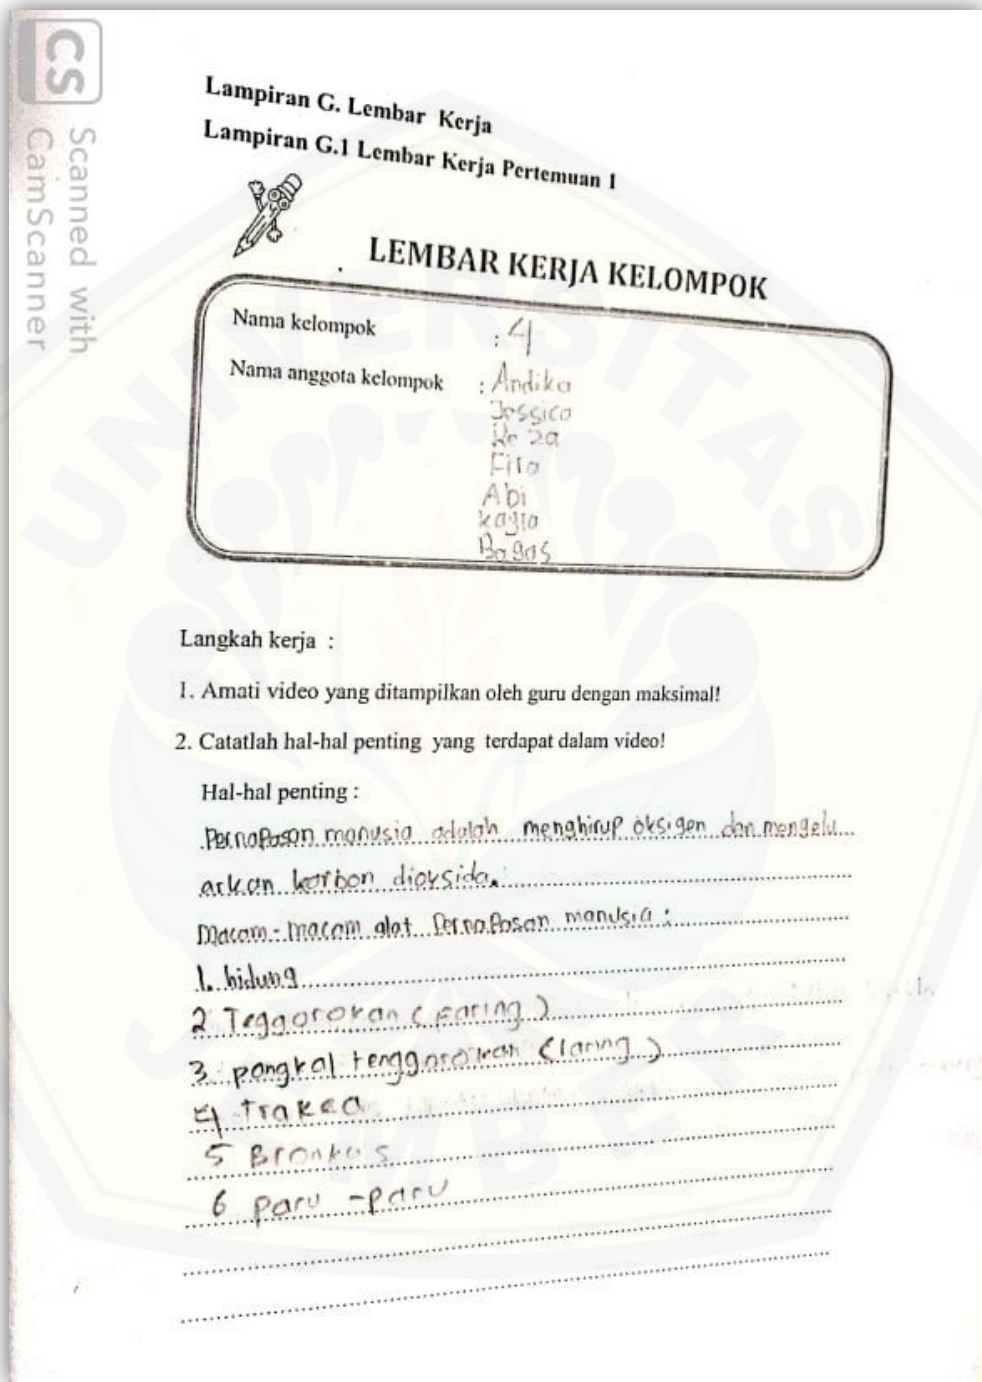 CS
Scanned with
CamScanner
Lampiran G. Lembar Kerja
Lampiran G.1 Lembar Kerja Pertemuan 1
LEMBAR KERJA KELOMPOK
Nama kelompok : 4
Nama anggota kelompok : Andika
Jessica
Reza
Abi
Bagas
Langkah kerja :
1. Amati video yang ditampilkan oleh guru dengan maksimal!
2. Catatlah hal-hal penting yang terdapat dalam video!
Hal-hal penting :
Pernapasan manusia adalah menghirup oksigen dan mengelu
arkan karbon dioksida.
Macam-macam alat Pernapasan manusia :
1. hidung
2 Teggorokan (Faring)
3. pangkal tenggorokan (laring)
4 Trakea
5 Bronkus
6 paru - paru
UNIVERSITAS
JEMBER